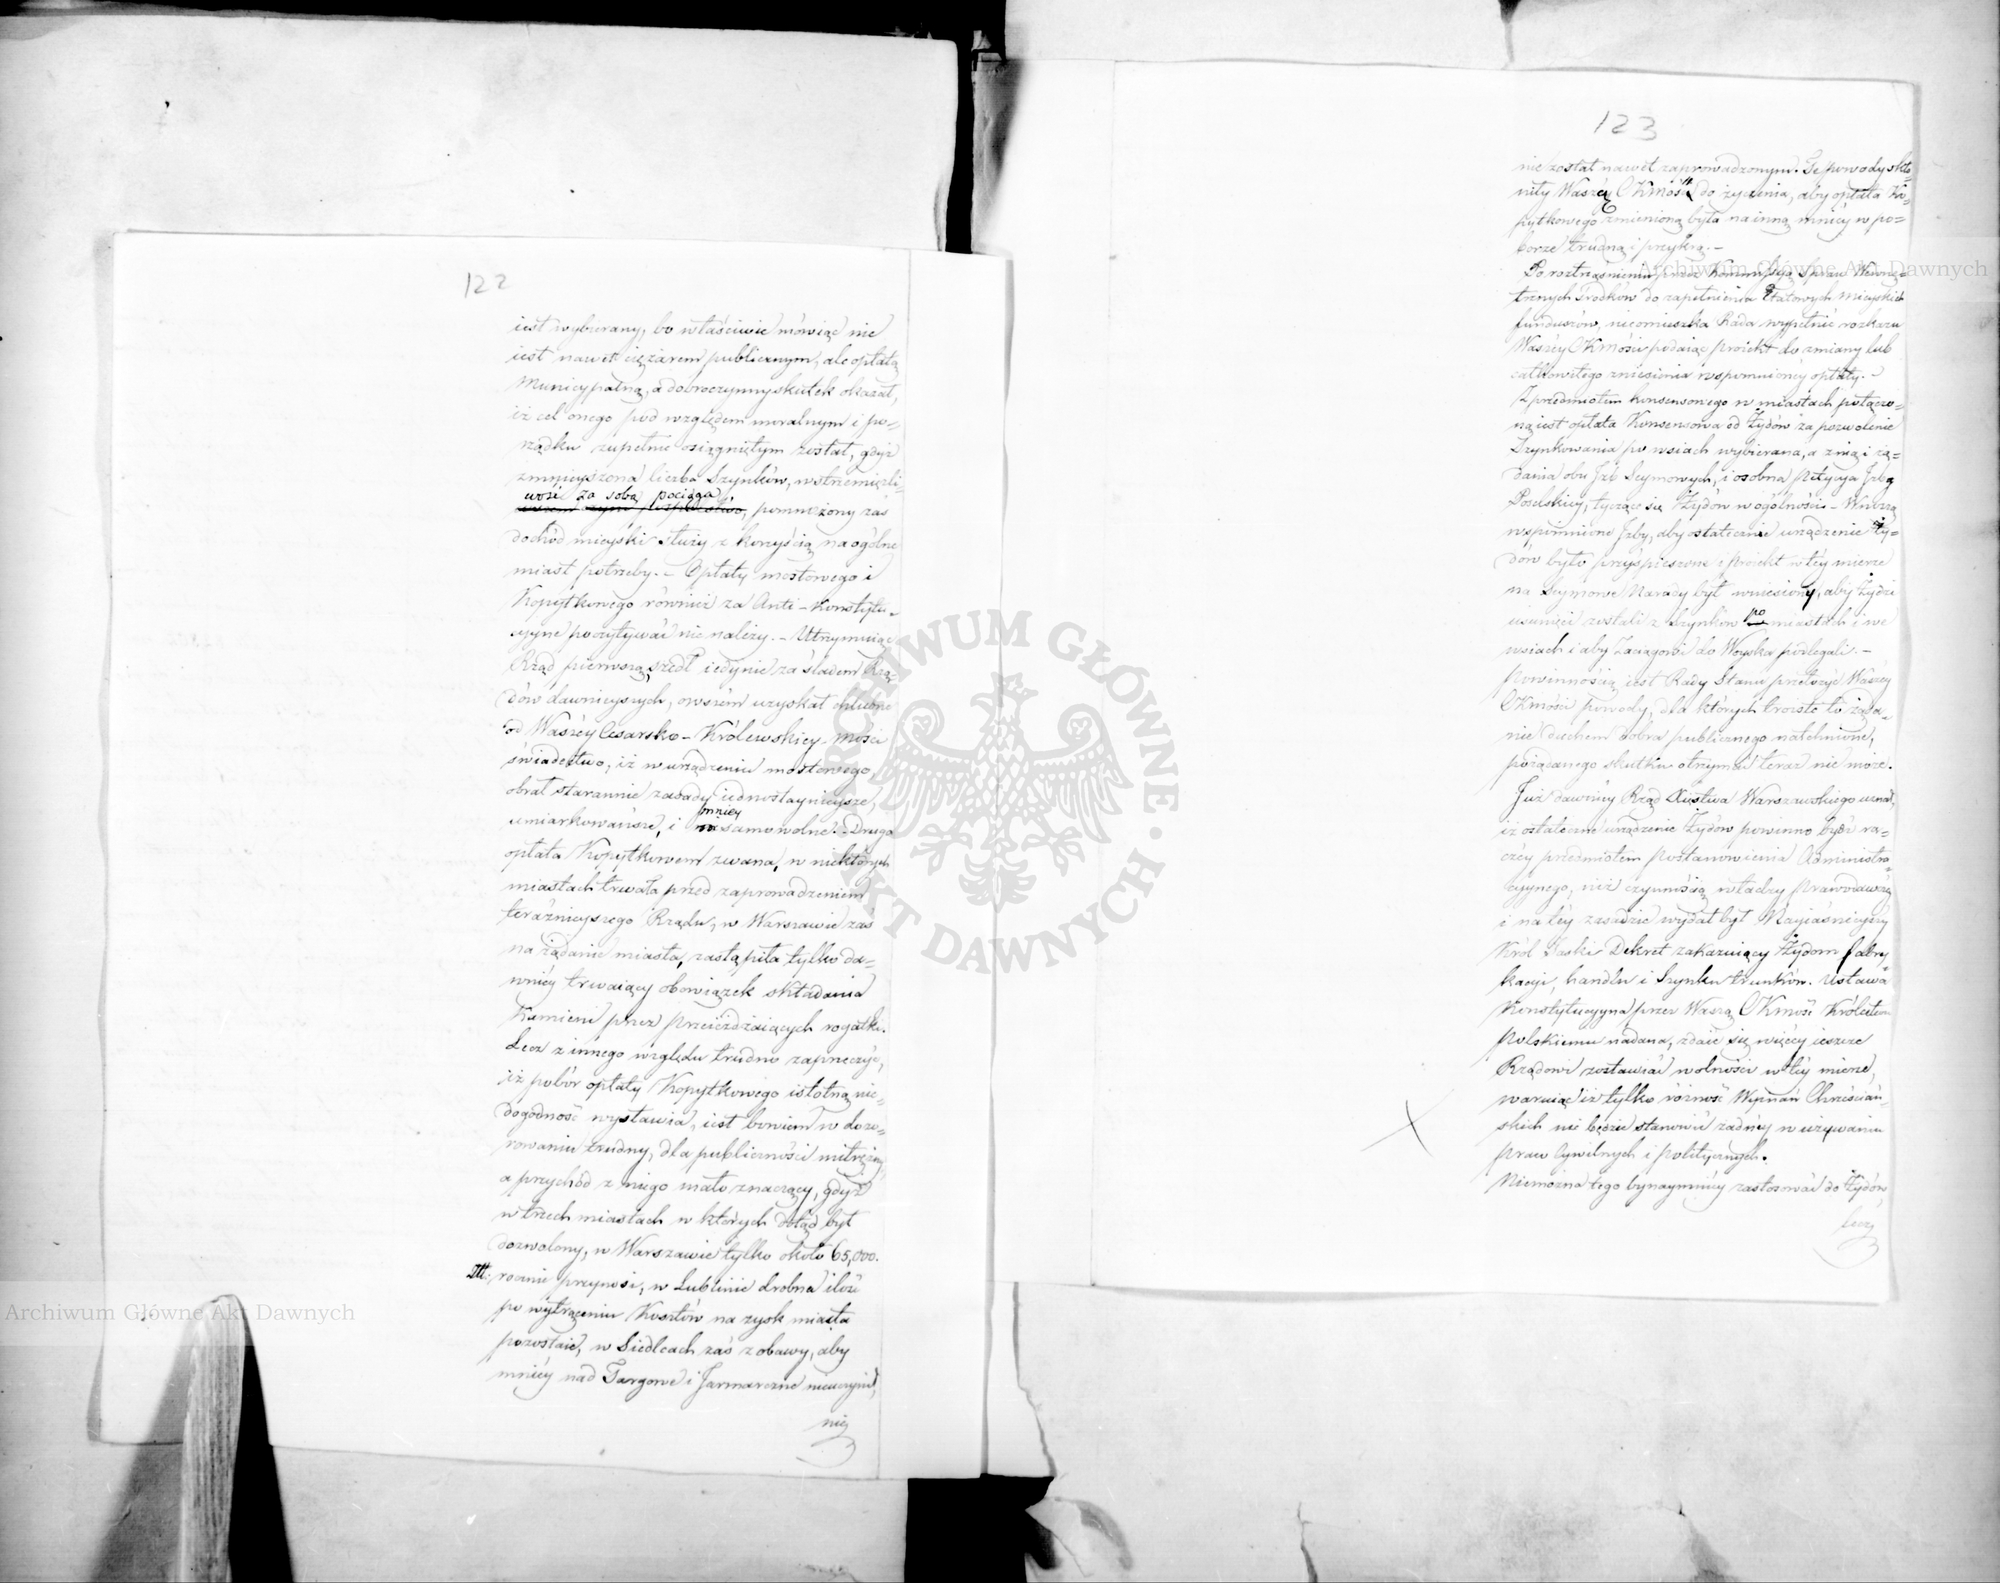 122
iest wybierany, bo właściwie mówiąc nie
iest nawet ciężarem publicznym, ale opłatą
Municypalną, a dobroczynny skutek okazał,
iż cel onego pod względem moralnym i po=
rządku zupełnie osiągniętym został, gdyż
zmnieyszona liczba Szynków, wstrzemięźli=
wość za sobą pociąga
pomnożony zaś
dochód mieyski służy z korzyścią na ogólne
miast potrzeby. – Opłaty mostowego i
Kopytkowego również za Anti-Konstytu=
cyyne poczytywać nie należy. – Utrzymuiąc
Rząd pierwszą, szedł iedynie za śladem Rzą=
dów dawnieyszych, owszem uzyskał chlubne
od Waszéy Cesarsko-Królewskiey Mości
świadectwo, iż w urządzeniu mostowego,
obrał starannie zasady iednostaynieysze,
mniey
umiarkowańsze, i samowolne. Druga
opłata Kopytkowem zwana, w niektórych
miastach trwała przed zaprowadzeniem
teraźnieyszego Rządu, w Warszawie zaś
na żądanie miasta, zastąpiła tylko da=
wniéy trwaiący obowiązek składania
Kamieni przez przeieżdżaiących rogatki.
Lecz z innego względu trudno zaprzeczyć,
iż pobór opłaty Kopytkowego istotną nie=
dogodność wystawia, iest bowiem w dozo=
rowaniu trudny, dla publiczności mitrężny,
a przychód z niego mało znaczący, gdyż
w trzech miastach w których dotąd był
dozwolony, w Warszawie tylko około 65,000.
rocznie przynosi, w Lublinie drobna ilość
po wytrąceniu Kosztów na zysk miasta
pozostaie, w Siedlcach zaś z obawy, aby
mniéy nad Targowe i Jarmarczne nieuczynił,
nie
123
nie został nawet zaprowadzonym. Te powody skło=
niły Waszą CKMość do życzenia, aby opłata Ko=
pytkowego zmienioną była na inną mniey w po=
borze trudną i przykrą. –
Po roztrząśnieniu przez Kommissyą Spraw Wewnę=
trznych środków do zapełnienia Etatowych Mieyskich
funduszów, nieomieszka Rada wypełnić rozkazu
Waszéy CKMości podaiąc proiekt do zmiany lub
całkowitego zniesienia wspomnionéy opłaty. –
Z przedmiotem konsensowego w miastach połączo=
ną iest opłata Konsensowa od Żydów za pozwolenie
Szynkowania po wsiach wybierana, a z nią i żą=
dania obu Izb Seymowych, i osobna Petycya Izby
Poselskiey, tycząc się Żydów w ogólności. – Wnoszą
wspomnione Izby, aby ostateczne urządzenie Ży=
dów było przyśpieszone i proiekt w téy mierze
na Seymowe Narady był wniesiony, aby Żydzi
po
usunięci zostali z szynków miastach i we
wsiach i aby Zaciągowi do Woyska podlegali. –
Powinnością iest Rady Stanu przełożyć Waszéy
CKMości powody, dla których troiste to żąda=
nie duchem dobra publicznego natchnione,
pożądanego skutku otrzymać teraz nie może.
Już dawniéy Rząd Xięstwa Warszawskiego uznał,
iż ostateczne urządzenie Żydów powinno być ra=
czéy przedmiotem postanowienia Administra=
cyynego, niż czynnością władzy Prawodawczéy
i na téy zasadzie wydał był Nayiaśnieyszy
Król Saski Dekret zakazuiący Żydom fabry=
kacyi, handlu i Szynku trunków. Ustawa
Konstytucyyna przez Waszą CKMość Królestwu
Polskiemu nadana, zdaie się więcéy ieszcze
Rządowi zostawiać wolności w téy mierze,
waruiąc iż tylko różność Wyznań Chrześciań=
skich nie będzie stanowić żadnéy w używaniu
praw Cywilnych i politycznych.
Niemożna tego bynaymniéy zastosować do Żydów,
lecz
ARCHIWUM GŁÓWNE AKT DAWNYCH
Archiwum Główne Akt Dawnych
Archiwum Główne Akt Dawnych